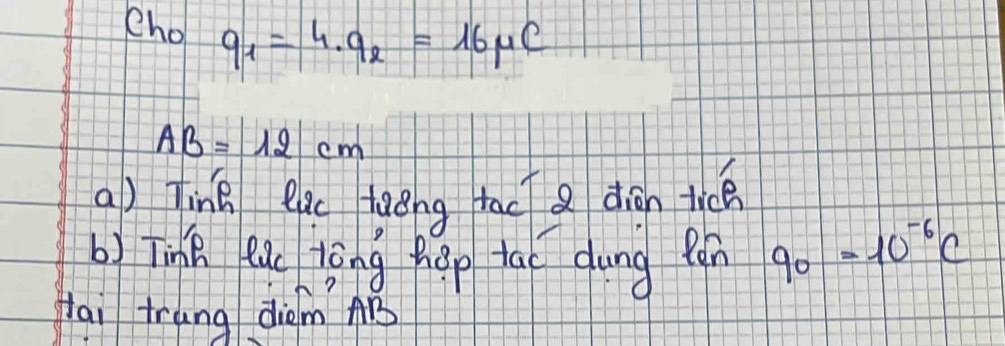 Cho q₁ = 4.q₂ = 16μC
AB = 12 cm
a) Tính lực tương tác 2 điện tích
b) Tính lực tổng hợp tác dụng lên q₀ = 10⁻⁶C
tại trung điểm AB